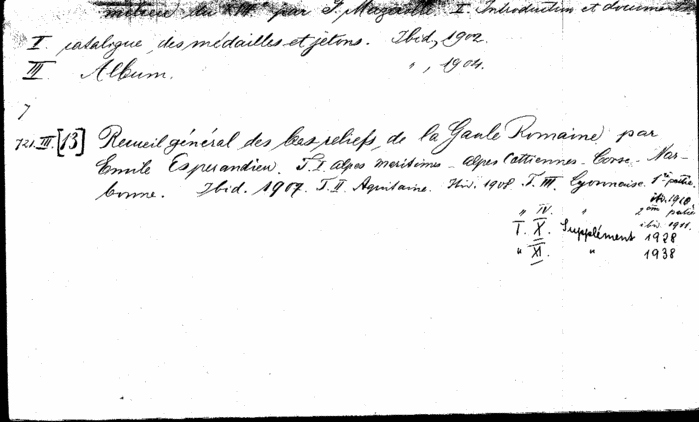 milieu du XIXe par J. Mazerolle. I. Introduction et documents
II. catalogue des médailles et jetons. Ibid, 1902.
III Album. " , 1904.
7
721.III.[13] Recueil général des bas reliefs de la Gaule Romaine par
Emile Esperandieu. T. I alpes maritimes - alpes Cottiennes - Corse - Nar-
bonne. Ibid. 1907. T. II. Aquitaine. Ibid. 1908. T. III. Lyonnaise. 1re partie.
ibid. 1910.
" IV. " 2ème partie
ibid. 1911.
T. X. Supplément 1928
" XI. " 1938